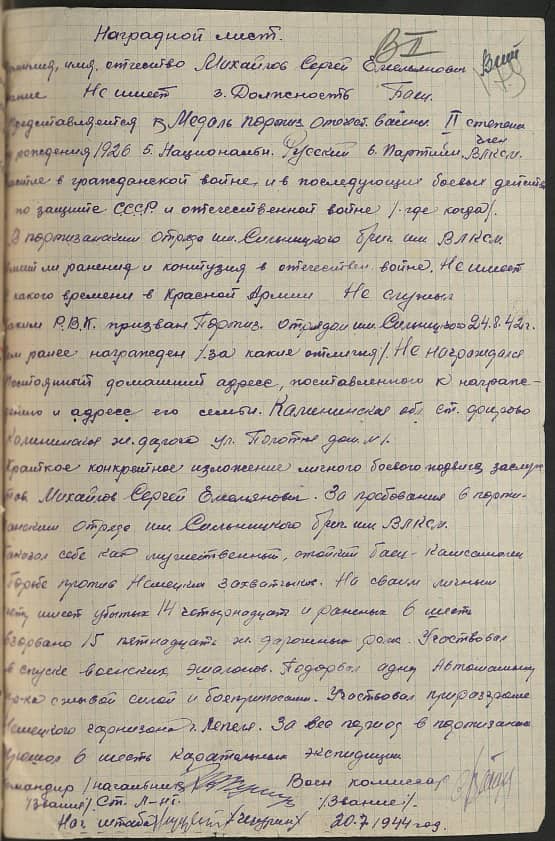 Наградной лист.
В II
имя, отчество Михайлов Сергей Емельянович
Не имеет 3. Должность Боец
Представляется к Медаль партиз. отечест. войны II степени
рождения 1926 5. Национальн. Русский 6. Партийн. член ВЛКСМ.
в гражданской войне, и в последующих боевых действ
по защите СССР и отечественной войне /. где когда/.
В партизанском Отряде им. Сильницкого бриг. им. ВЛКСМ
ли ранения и контузия в отечествен. войне. Не имеет
какого времени в Красной Армии Не служил
Каким Р.В.К. призван Партиз. Отрядом им. Сильницкого 24.8.42 г.
ранее награжден /за какие отличия/. Не награждался
Постоянный домашний адресс, поставленного к награжде-
нию и адресс его семьи. Калининская обл ст.
Калининская ж. дорога ул. дом №1.
Краткое конкретное изложение личного боевого подвига заслуг
тов. Михайлов Сергей Емельянович. За пребывания в парти-
занским Отряде им. Сильницкого бриг. им ВЛКСМ.
показал себе как мужественный, стойкий боец-Камсамолец
борьбе против Немецких захватчиков. На своим личным
имеет убитых 14 четырнадцат и раненых 6 шест
взорвано 15 пятнадцать ж. дорожных рельс. Участвовал
в спуске воинских эшалонов. Подорвал одну Автомашину
с живой силой и боеприпасами. Участвовал при разгроме
Немецкого гарнизона г. Лепель. За вес период в партизанах
прошол 6 шесть карательных экспедиции
Командир /начальник/ Воен комиссар
/Звание/. Ст. Л-нт. /Звание/.
Нач. штаба 20.7.1944 год.